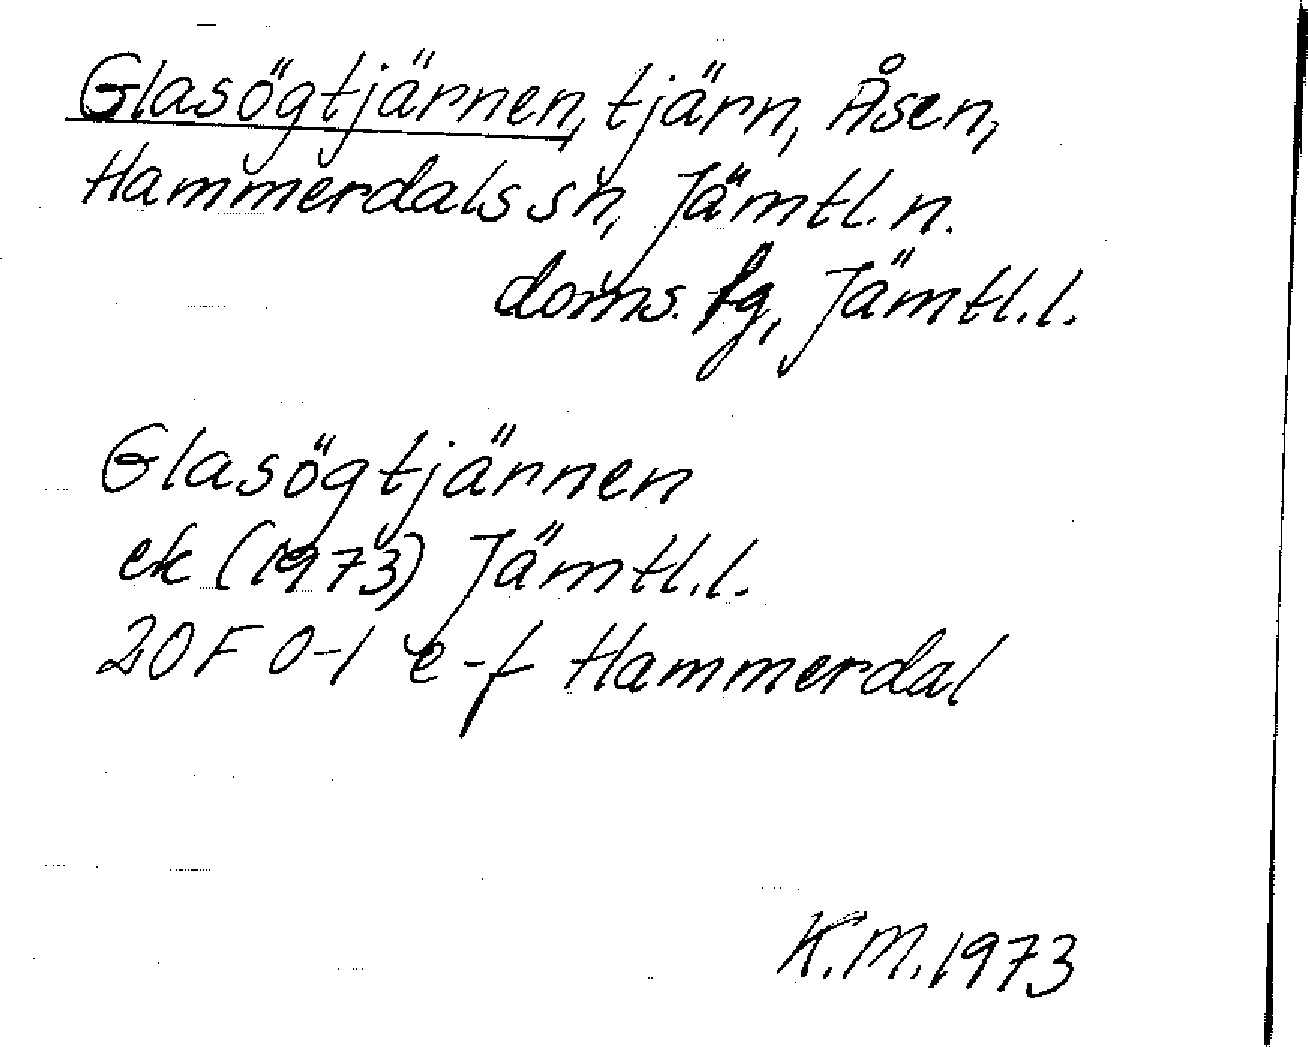 Glasögtjärnen, tjärn, Åsen,
Hammerdals sn, Jämtl. n.
doms. fg, Jämtl. l.
Glasögtjärnen
ek (1973) Jämtl. l.
20F 0-1 e-f Hammerdal
K.M. 1973